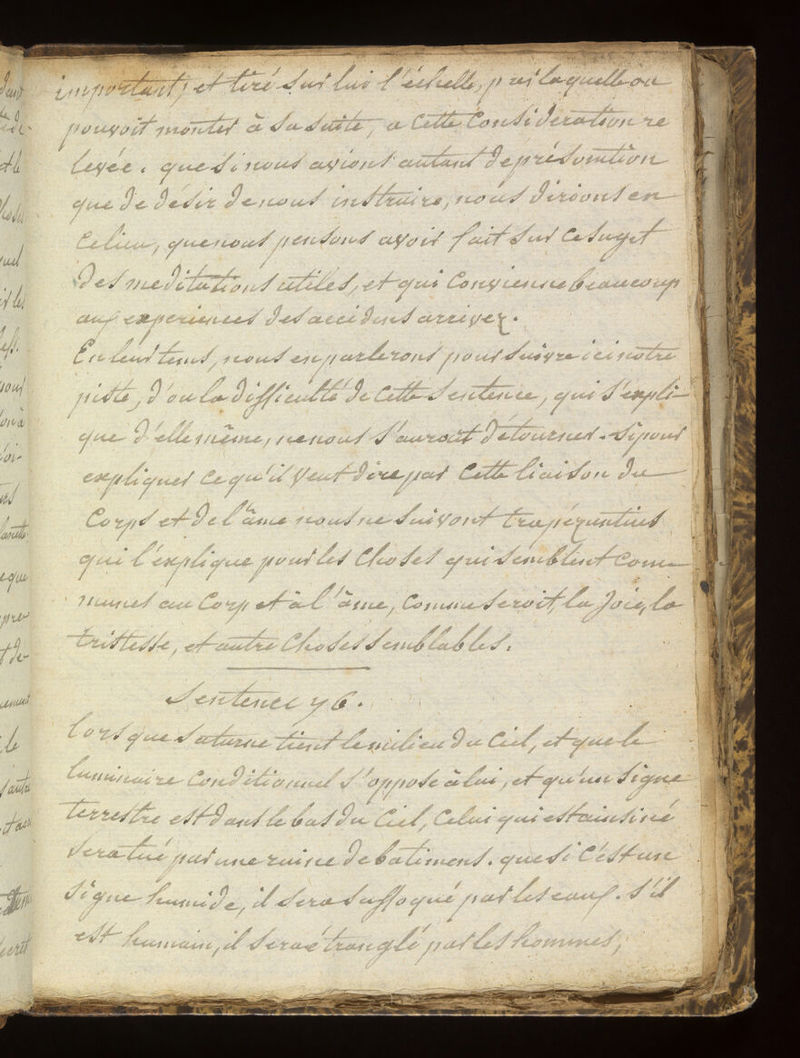 important, et tiré sur lui l'échelle, par laquelle on
pouvoit monter à sa suite, a cette Consideration re
levée. que si nous avions autant de présomtion
que de désir de nous instruire, nous dirions en
ce lieu, que nous pensons avoir fait sur ce sujet
des meditations utiles, et qui Convienne beaucoup
aux experiences des accidens arrivez.
En leur tems, nous en parlerons pour suivre ici notre
piste, d'ou la difficulté de cette Sentence, qui s'expli-
que d'elle même, ne nous s'auroit détourner. si pour
expliquer ce qu'il veut dire par cette liaison du
Corps et de l'âme nous ne suivont trapézuntius
qui l'éxplique pour les Choses qui semblent Com-
munes au Corp et à l'âme, Comme seroit, la Joie, la
tristesse, et autre Choses semblables.
Sentence 76.
lors que Saturne tient le milieu du Ciel, et que le
luminaire Conditionnel s'oppose à lui, et qu'un Signe
terrestre est dans le bas du Ciel, Celui qui est ainsi né
sera tué par une ruine de batimens. que si c'est un
signe humide, il sera suffoqué par les eaux. s'il
est humain, il sera étranglé par les hommes,